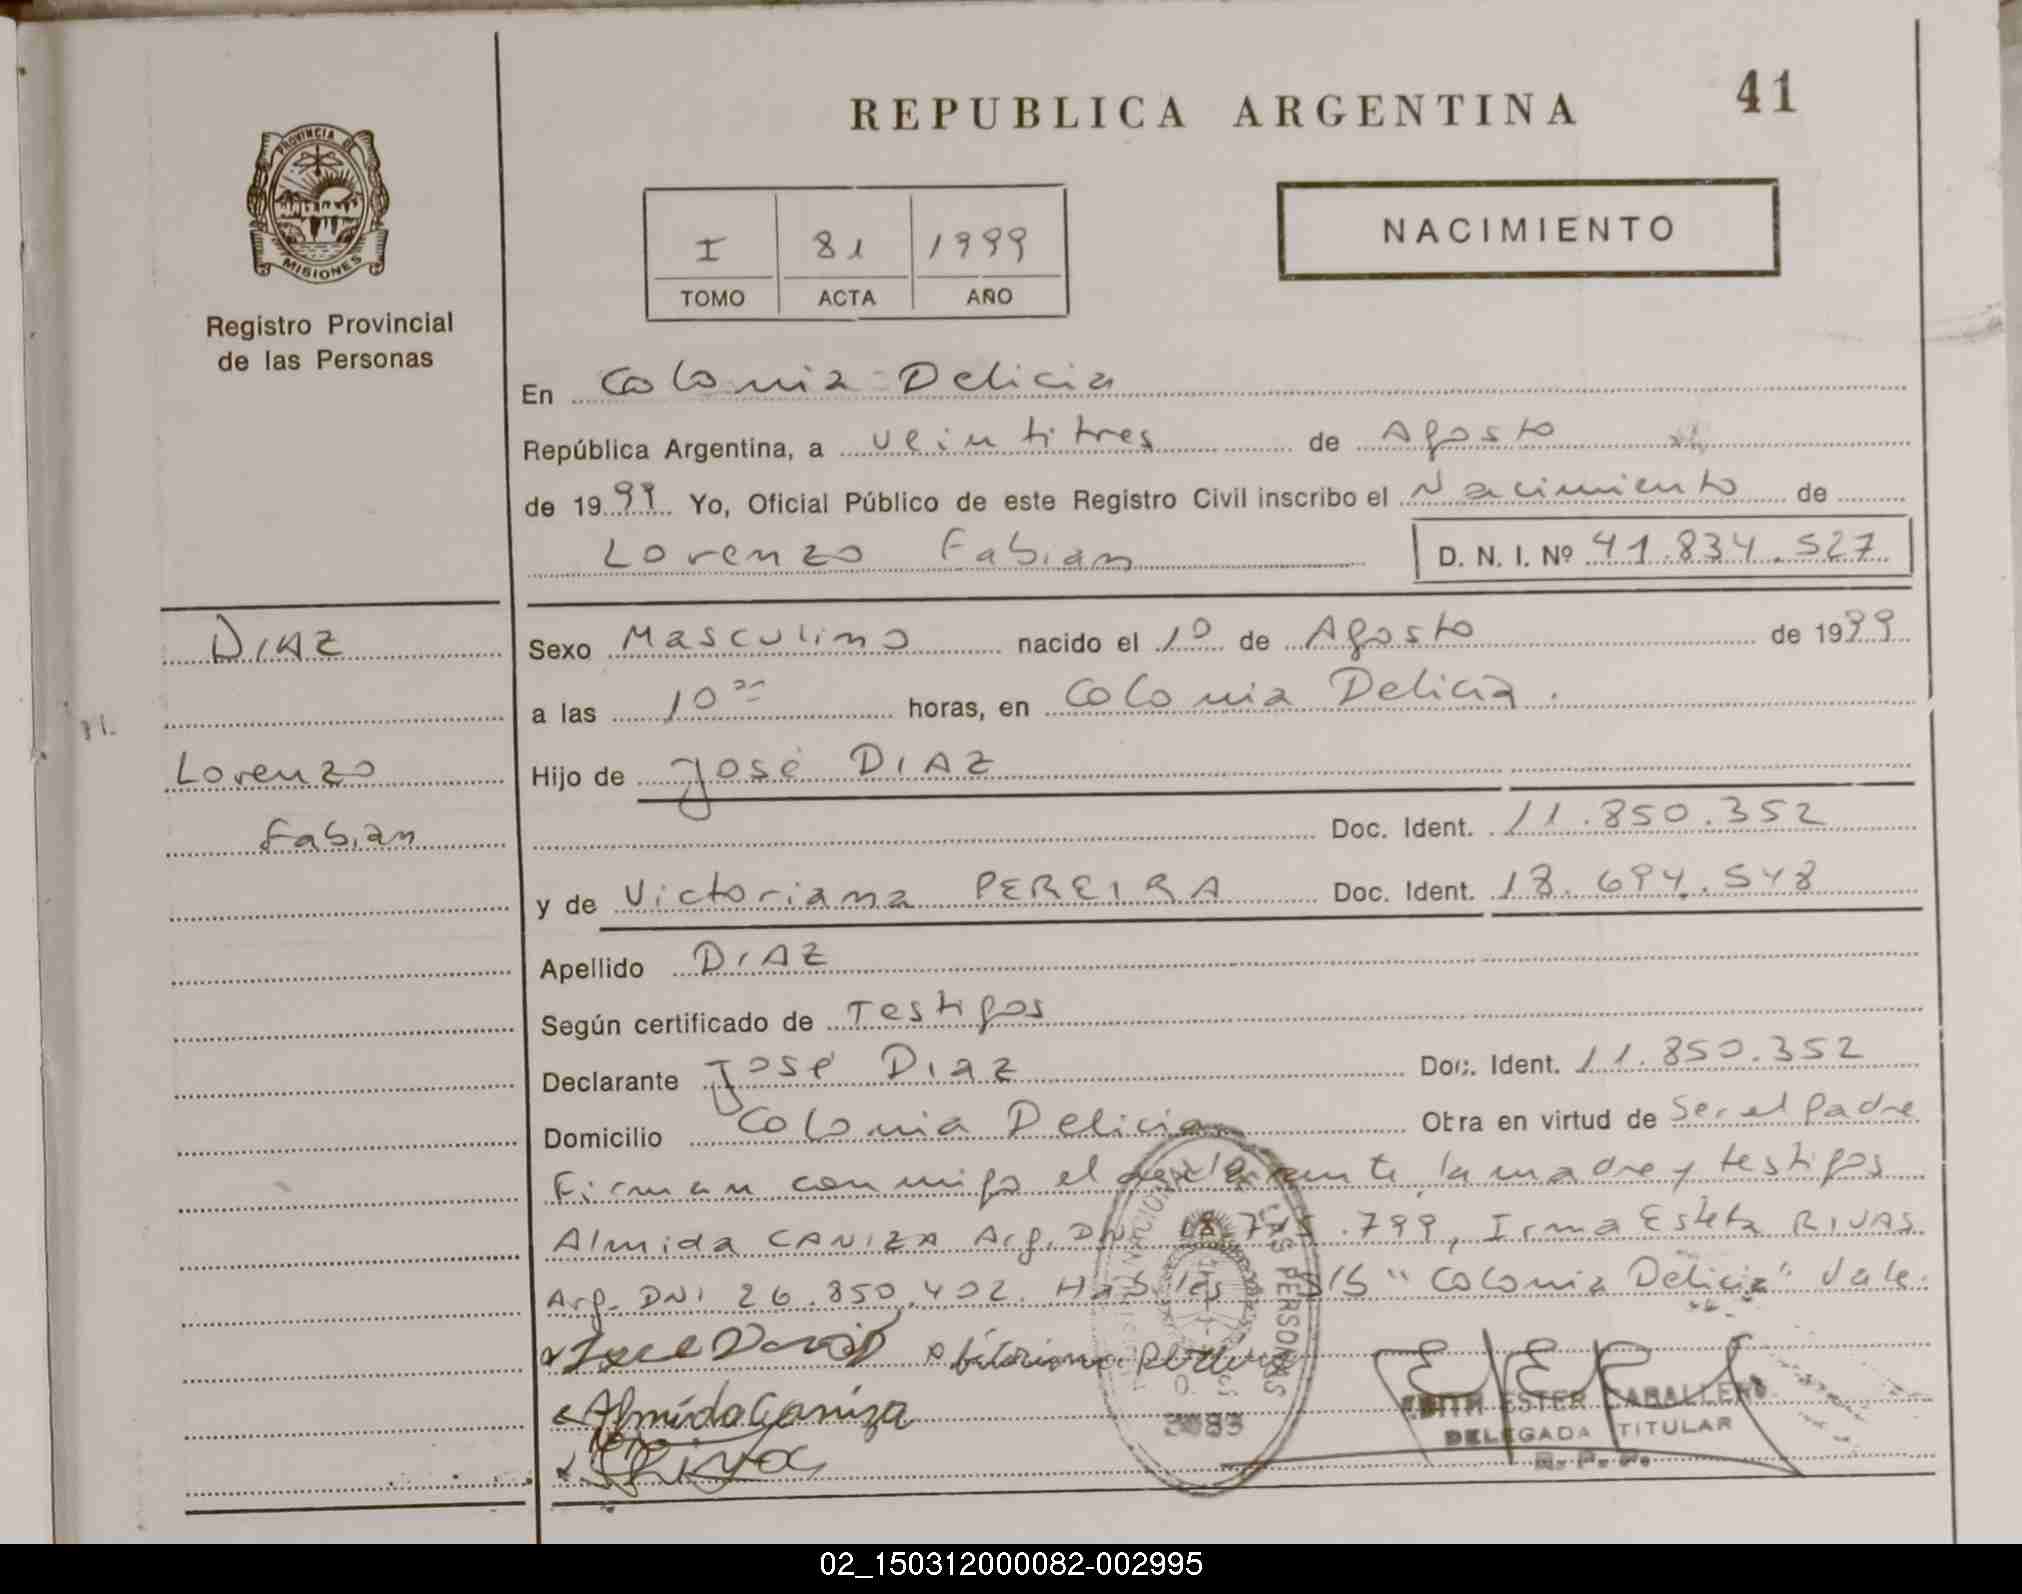 REPUBLICA ARGENTINA
41
PROVINCIA DE
MISIONES
Registro Provincial
de las Personas
I 81 1999
TOMO ACTA AÑO
NACIMIENTO
En Colonia Delicia
República Argentina, a veintitres de Agosto
de 1999 Yo, Oficial Público de este Registro Civil inscribo el Nacimiento de
Lorenzo Fabian D. N. I. Nº 41.834.527
DIAZ
Lorenzo
Fabian
Sexo Masculino nacido el 1º de Agosto de 1999
a las 10 horas, en Colonia Delicia.
Hijo de José DIAZ
Doc. Ident. 11.850.352
y de Victoriana PEREIRA Doc. Ident. 18.694.548
Apellido DIAZ
Según certificado de Testigos
Declarante José Diaz Doc. Ident. 11.850.352
Domicilio Colonia Delicia Otra en virtud de Ser el padre
Firman conmigo el declarante, la madre y testigos
Almida CANIZA Arg. DNI 18.745.799, Irma Estela RIVAS
Arg. DNI 26.850.402. Habiles S/S "Colonia Delicia" Vale.
Jose
Almida Caniza
Rivas
LAS PERSONAS
2083
EDITH ESTER CABALLERO
DELEGADA TITULAR
R. P. P.
02_150312000082-002995